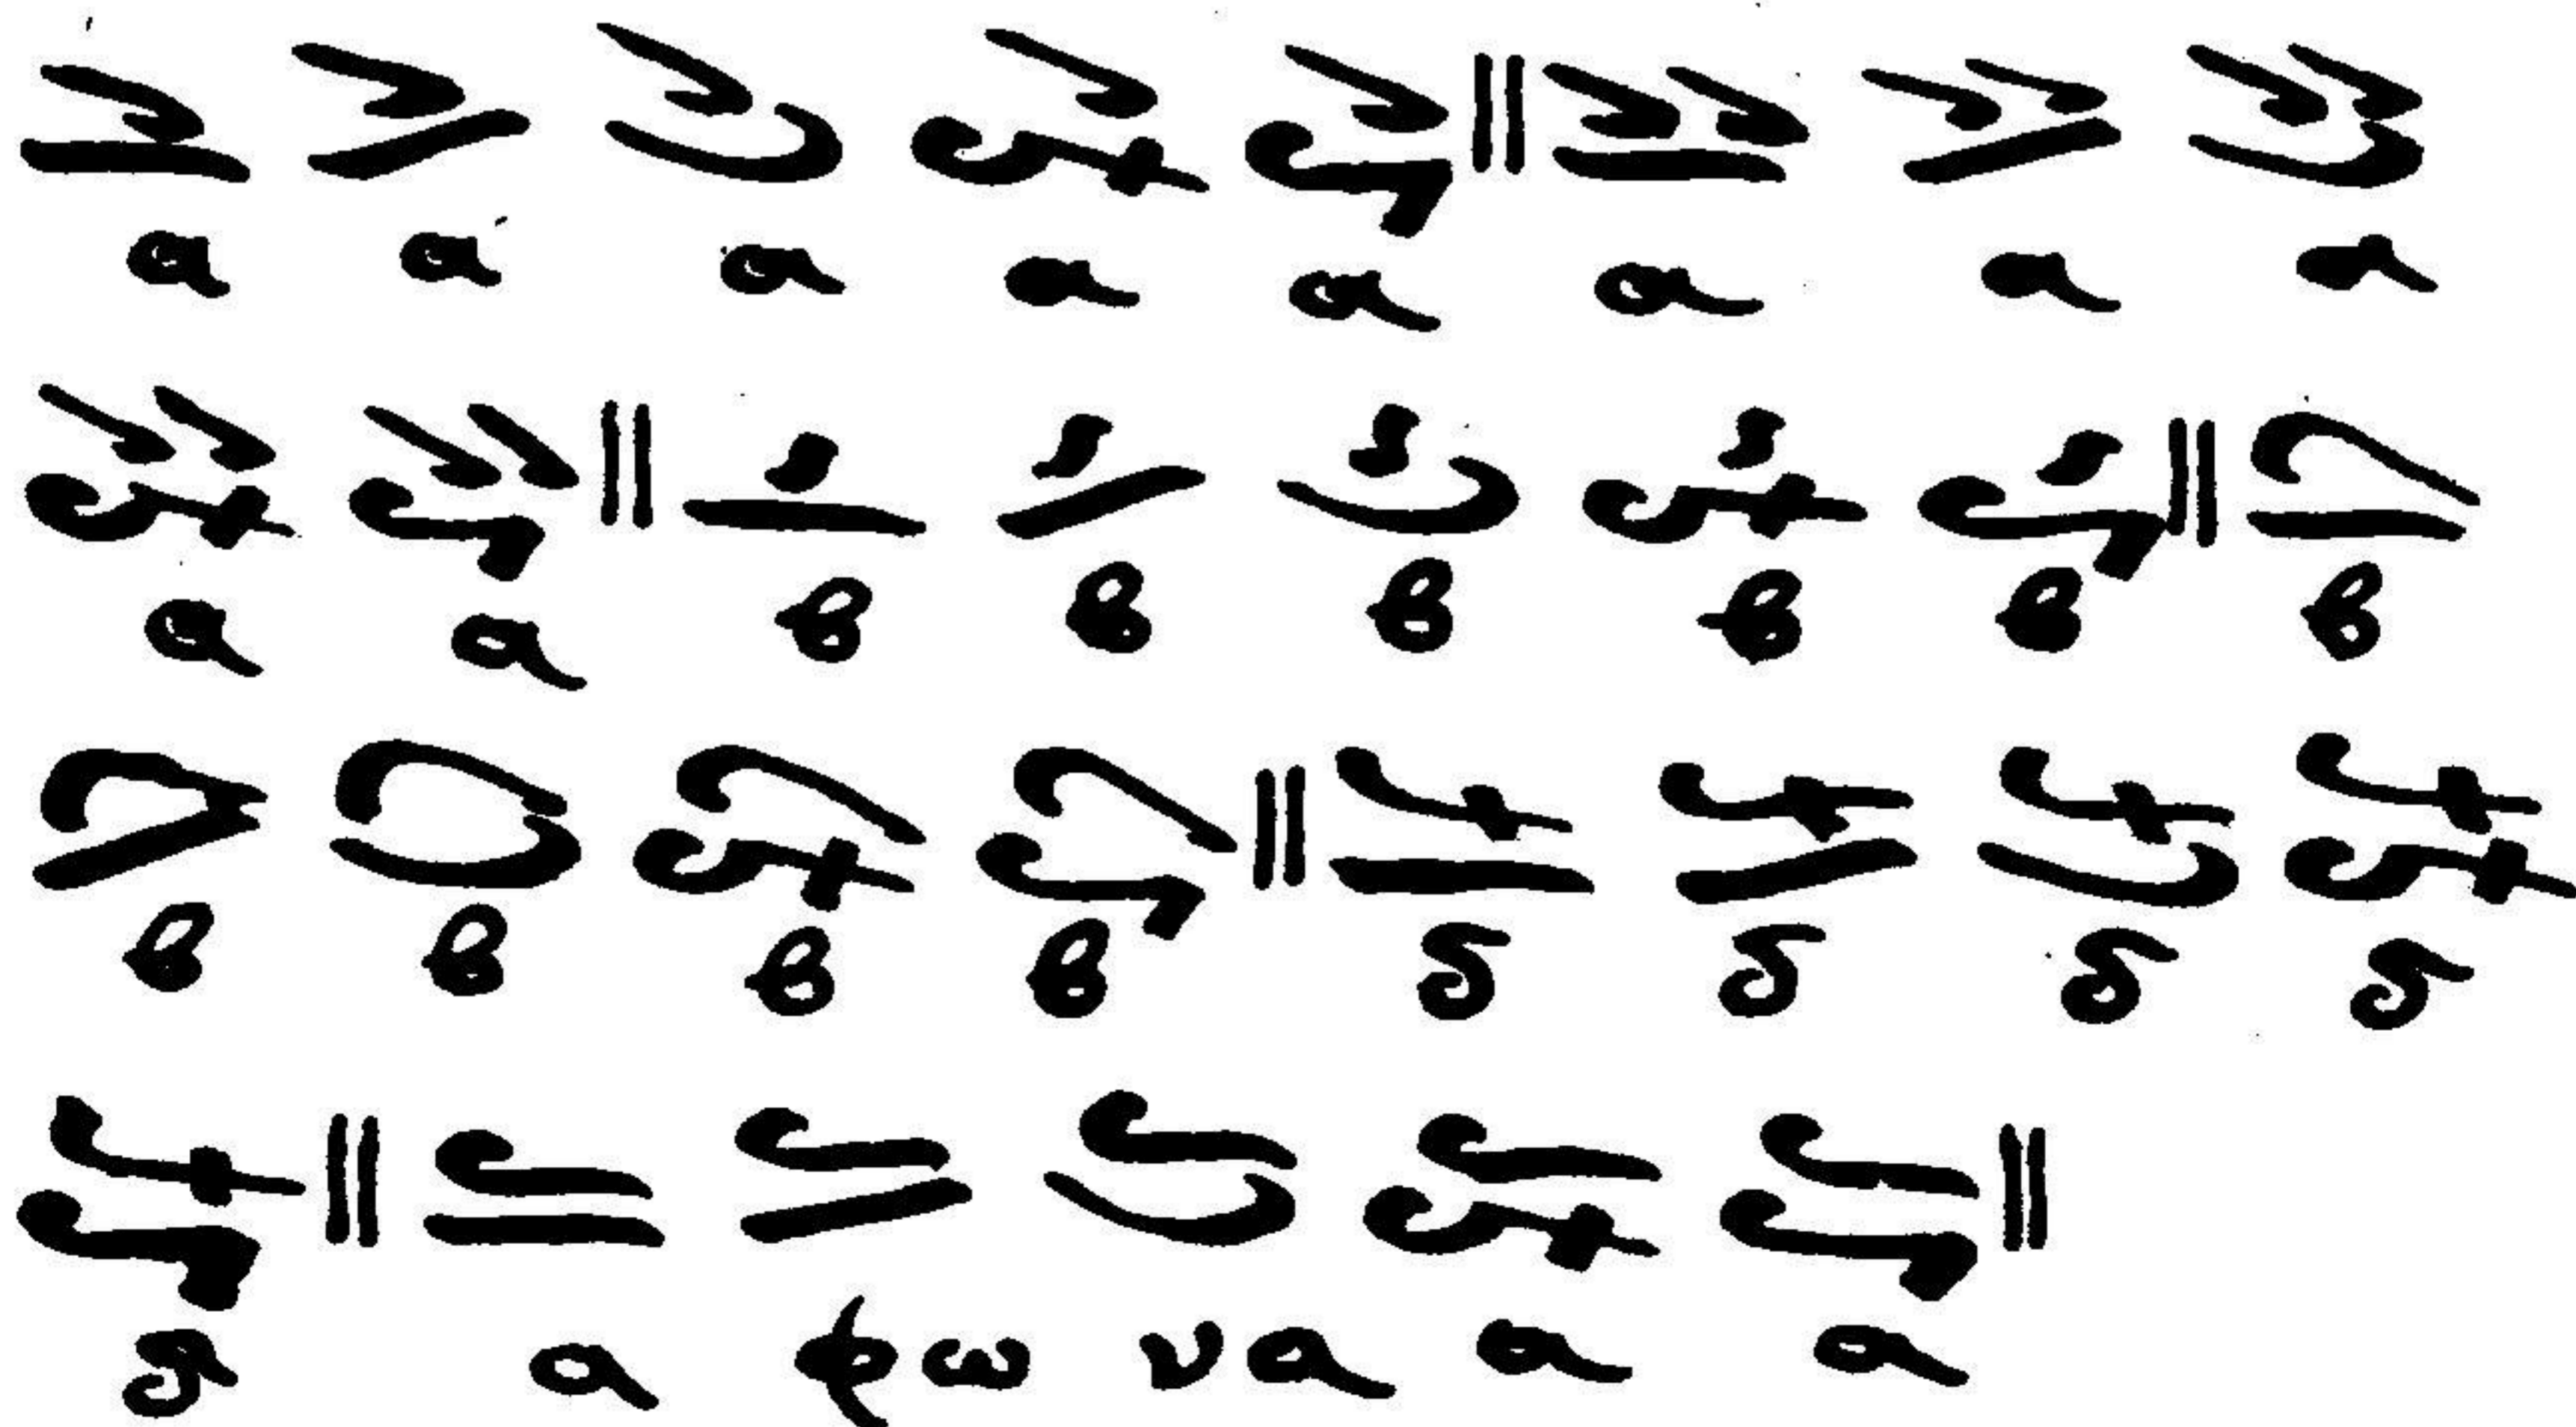 α α α α α α α α
α α β β β β β β
β β β β δ δ δ δ
δ α φω να α α